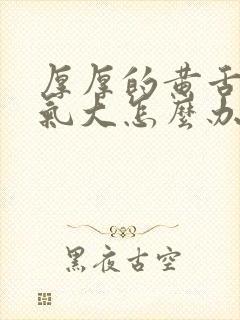 厚厚的黄舌
氣大怎麼办
黑夜古空